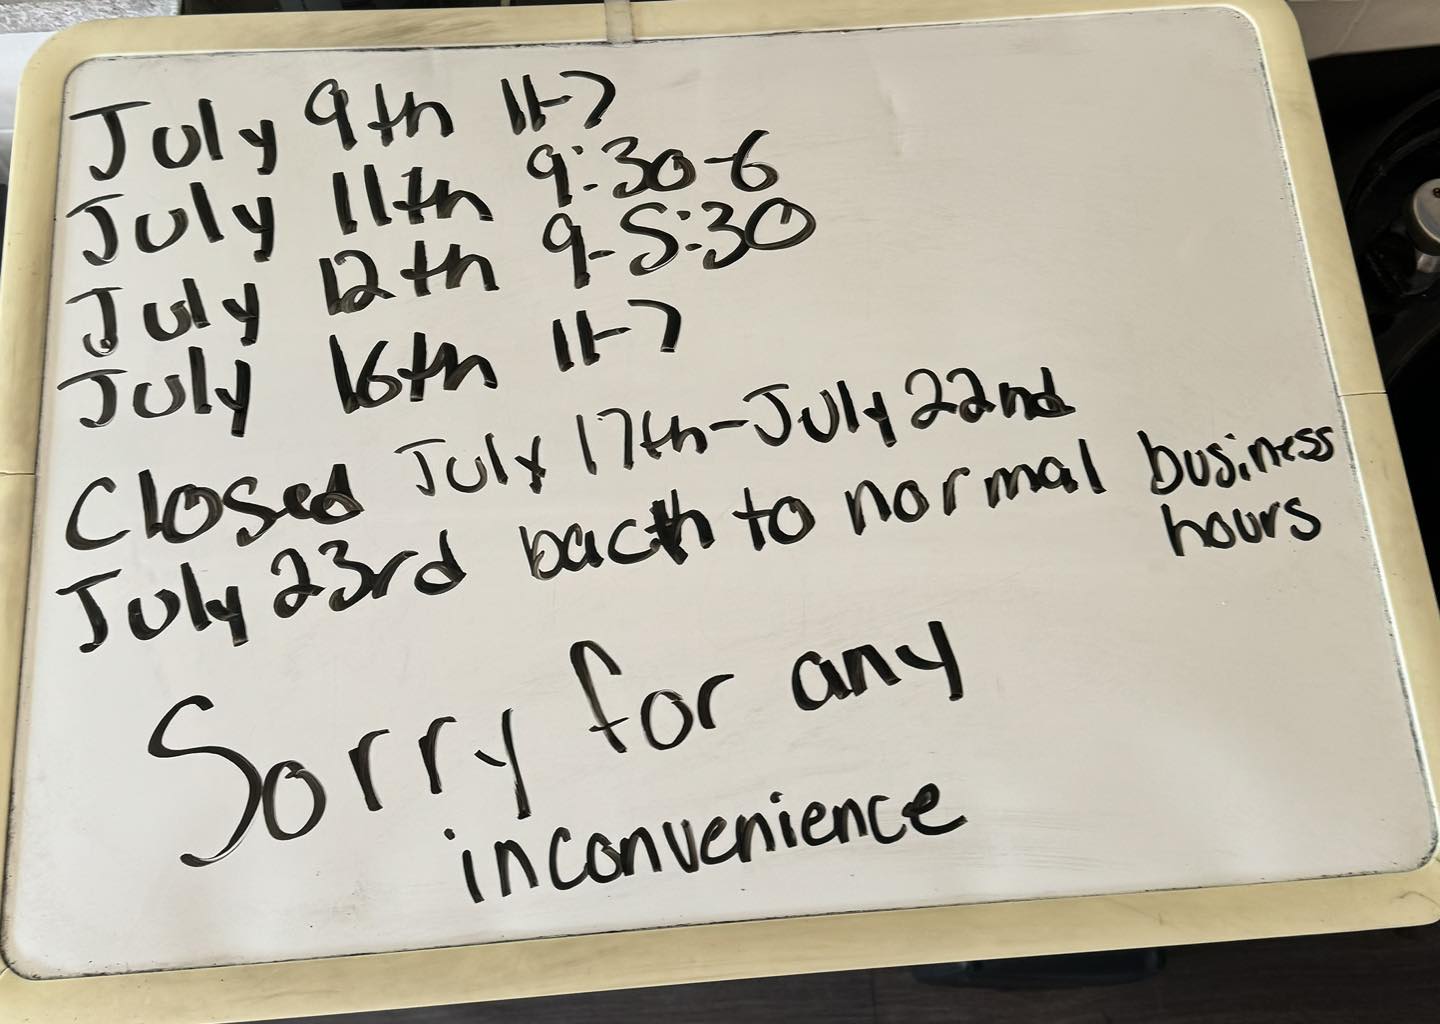 July 9th 11-7
July 11th 9:30-6
July 12th 9-5:30
July 16th 11-7
Closed July 17th-July 22nd
July 23rd back to normal business
hours
Sorry for any
inconvenience